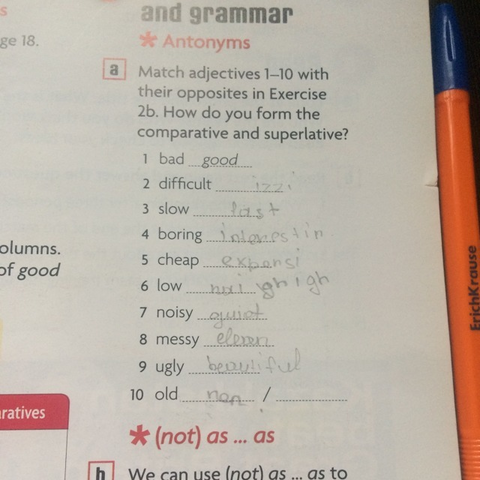 s
and grammar
ge 18.
* Antonyms
a Match adjectives 1–10 with
their opposites in Exercise
2b. How do you form the
comparative and superlative?
1 bad good
2 difficult izzi
3 slow
4 boring
5 cheap expensi
6 low
7 noisy quiet
8 messy
9 ugly beautiful
10 old /
olumns.
of good
ratives
* (not) as ... as
b We can use (not) as ... as to
ErichKrause